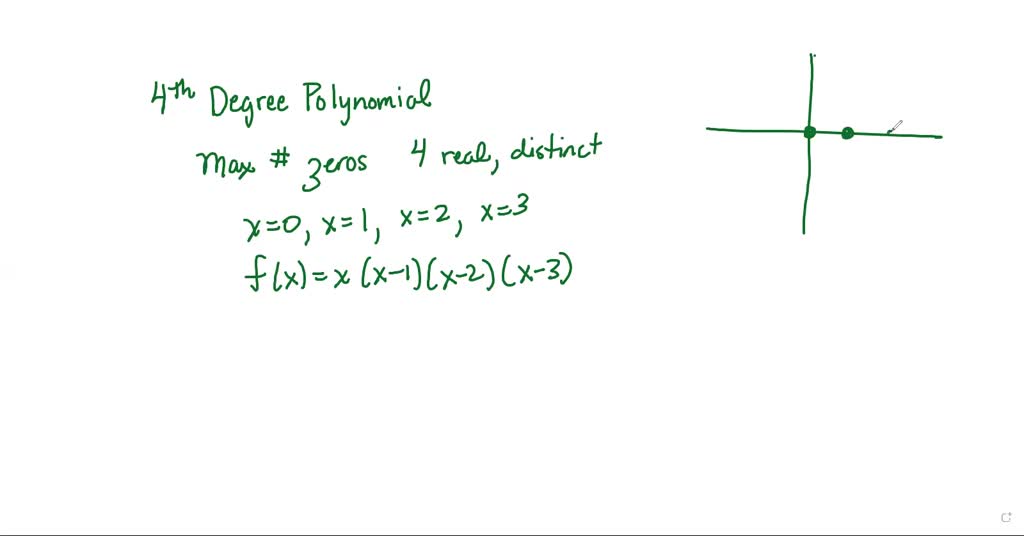 4th Degree Polynomial
Max # zeros 4 real, distinct
x=0, x=1, x=2, x=3
f(x)=x(x-1)(x-2)(x-3)